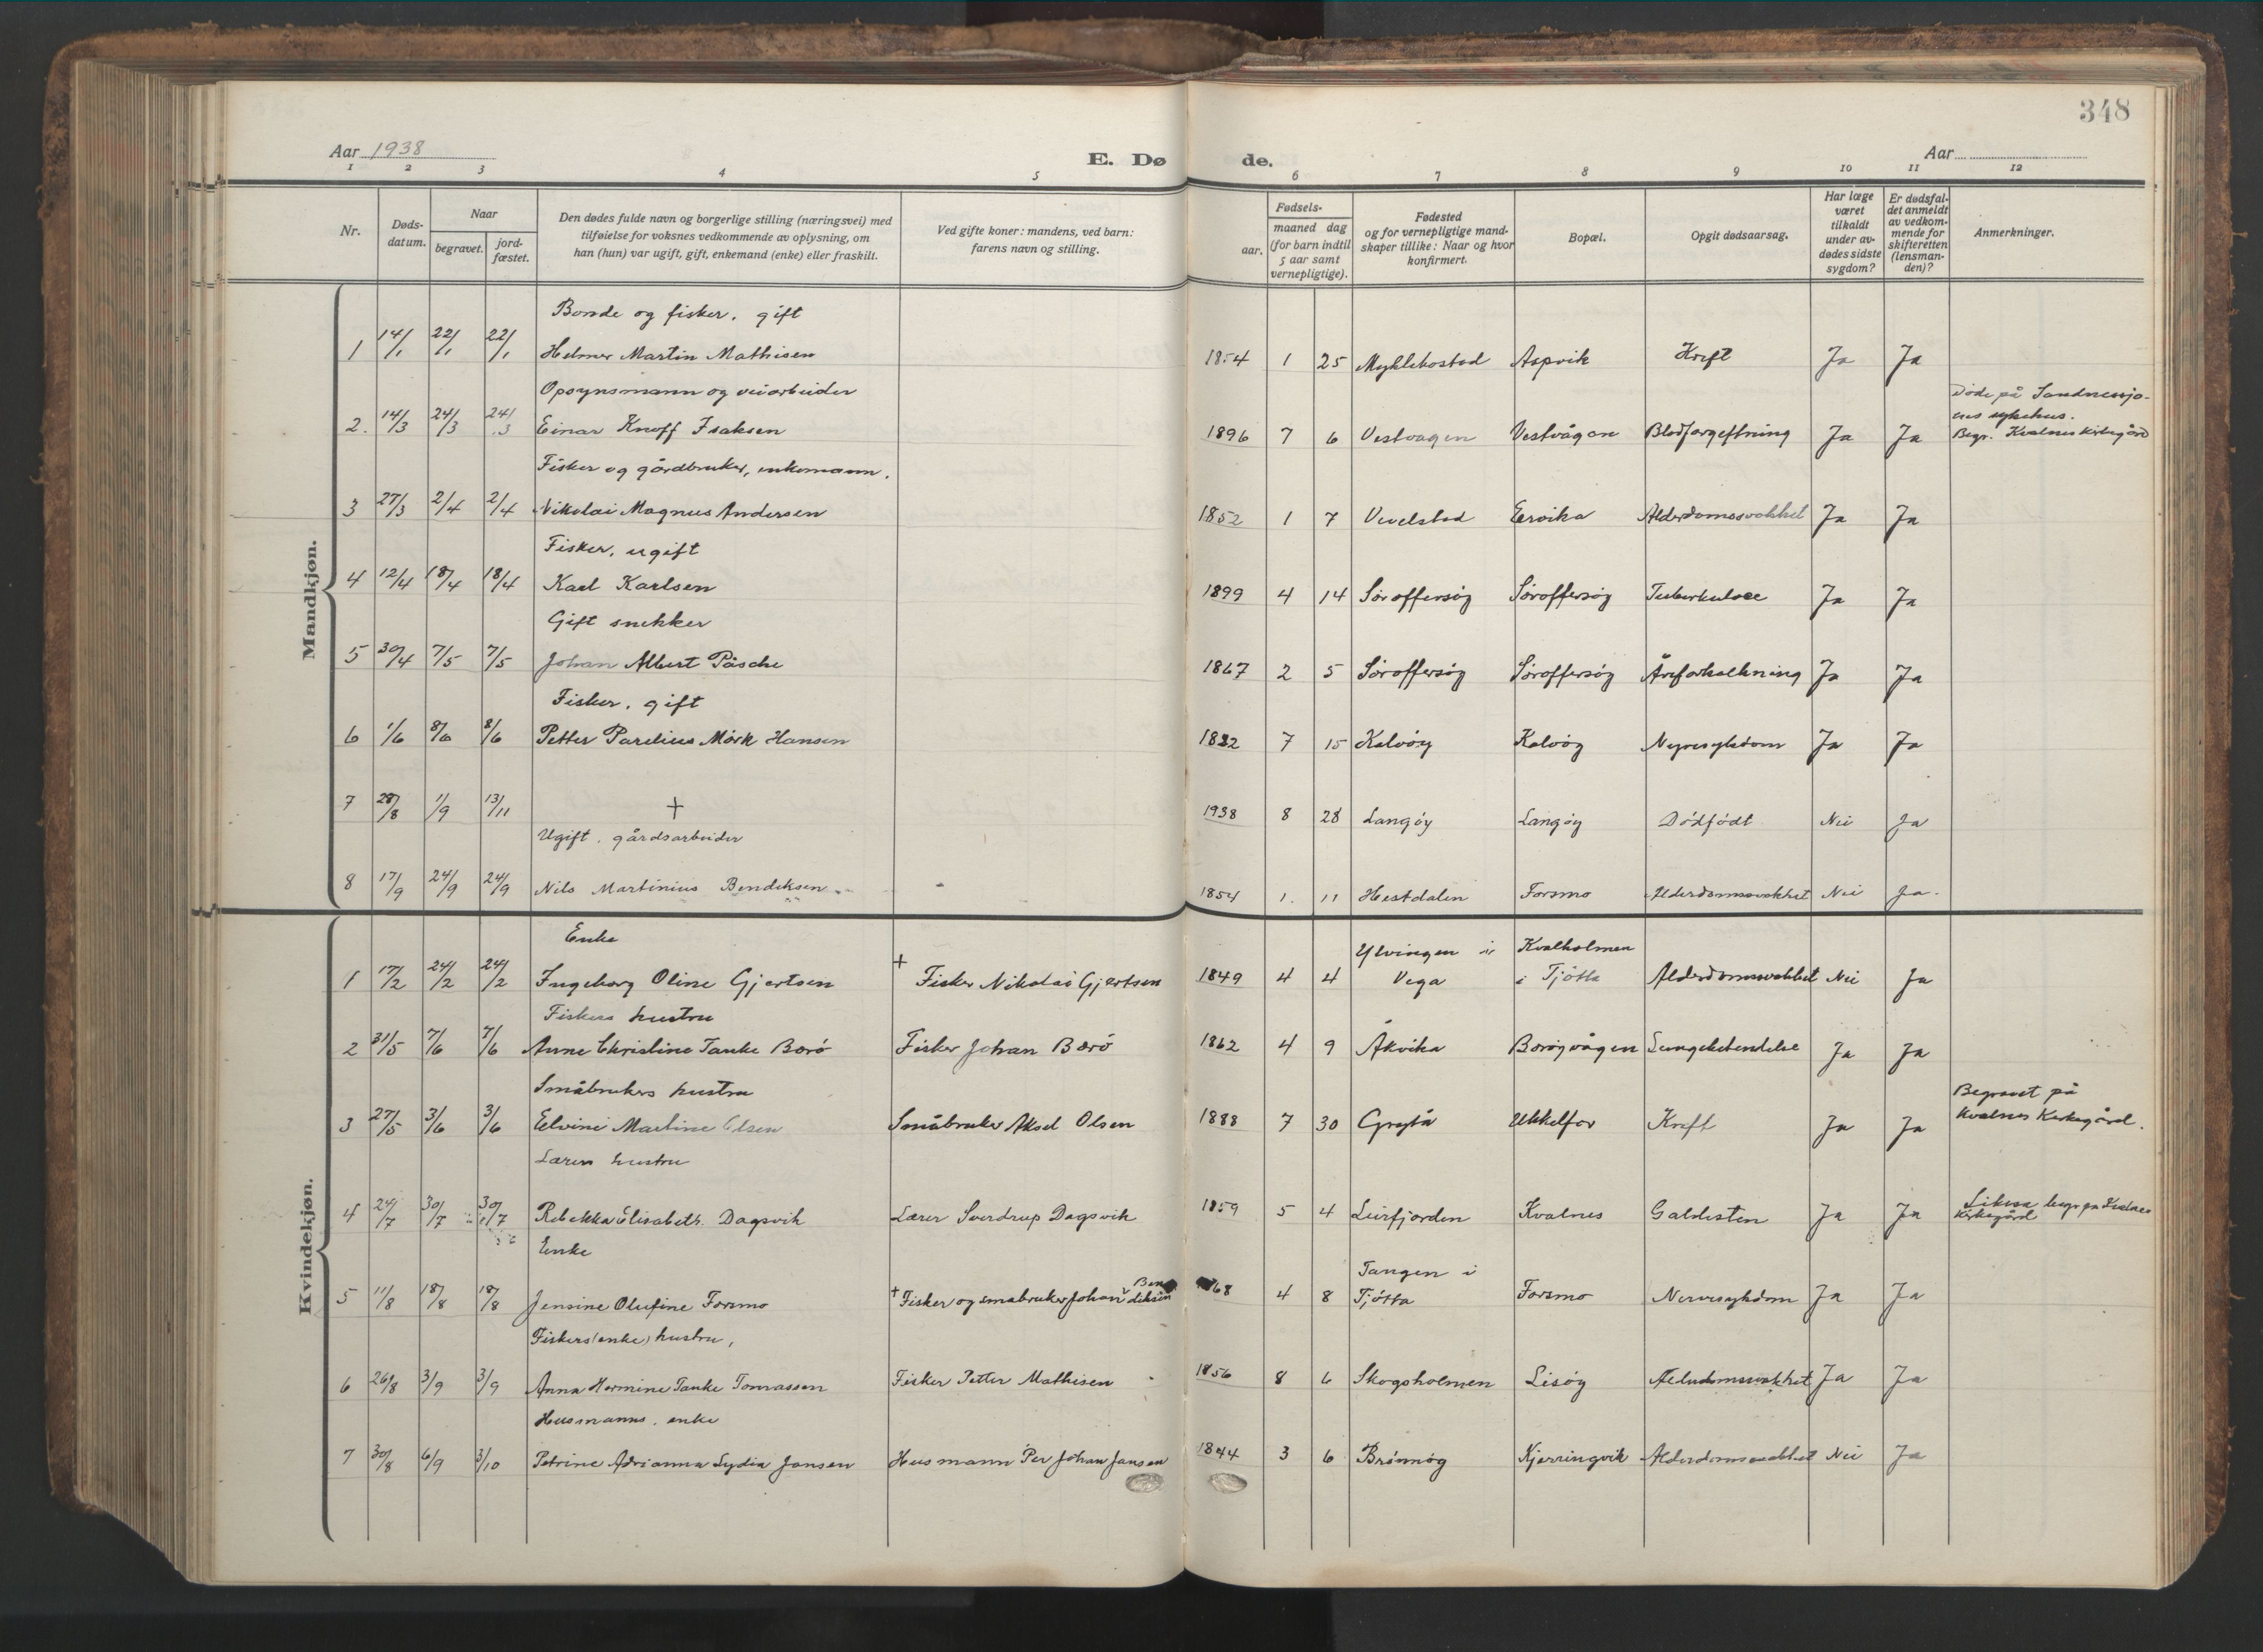 348
Aar 1938
E. Dø de.
Aar
1 2 3 4 5 6 7 8 9 10 11 12
Nr.
Døds-
datum.
Naar
begravet.
jord-
fæstet.
Den dødes fulde navn og borgerlige stilling (næringsvei) med
tilføielse for voksnes vedkommende av oplysning, om
han (hun) var ugift, gift, enkemand (enke) eller fraskilt.
Ved gifte koner: mandens, ved barn:
farens navn og stilling.
Fødsels-
aar.
maaned dag
(for barn indtil
5 aar samt
vernepligtige).
Fødested
og for vernepligtige mand-
skaper tillike: Naar og hvor
konfirmert.
Bopæl.
Opgit dødsaarsag.
Har læge
været
tilkaldt
under av-
dødes sidste
sygdom?
Er dødsfal-
det anmeldt
av vedkom-
mende for
skifteretten
(lensman-
den)?
Anmerkninger.
Mandkjøn.
Bonde og fisker, gift
1 14/1 22/1 22/1 Helmer Martin Mathisen 1854 1 25 Myklebostad Aspvik Kreft Ja Ja
Opsynsmann og veiarbeider
Døde på Sandnessjø-
ens sykehus.
2. 14/3 24/3 24/3 Einar Knoff Isaksen 1896 7 6 Vestvågen Vestvågen Blodforgeftning Ja Ja Begr. Kvalnes kirkegård
Fisker og gårdbruker, enkemann.
3 27/3 2/4 2/4 Nikolai Magnus Andersen 1852 1 7 Vevelstad Eervika Alderdomssvakhet Ja Ja
Fisker, ugift
4 12/4 18/4 18/4 Karl Karlsen 1899 4 14 Søroffersøy Søroffersøy Tuberkulose Ja Ja
Gift snekker
5 30/4 7/5 7/5 Johan Albert Påsche 1867 2 5 Søroffersøy Søroffersøy Åreforkalkning Ja Ja
Fisker, gift
6 1/6 8/6 8/6 Petter Parelius Mörk Hansen 1882 7 15 Kalvöy Kalvöy Nyresykdom Ja Ja
7 28/8 1/9 13/11 † 1938 8 28 Langöy Langöy Dödfödt Nei Ja
Ugift, gårdsarbeider
8 17/9 24/9 24/9 Nils Martinius Bendiksen 1854 1. 11 Hestdalen Forsmo Alderdomssvakhet Nei Ja
Kvindekjøn.
Enke
Ylvingen i Kvalholmen
1 17/2 24/2 24/2 Ingeborg Oline Gjertsen † Fisker Nikolai Gjertsen 1849 4 4 Vega i Tjötta Alderdomssvakhet Nei Ja
Fiskers hustru
2 31/5 7/6 7/6 Anne Christine Tanke Borö Fisker Johan Borö 1862 4 9 Åkvika Boröyvågen Lungebetendelse Ja Ja
Småbrukers hustru
Begravet på
3 27/5 3/6 3/6 Elvine Martine Olsen Småbruker Aksel Olsen 1888 7 30 Grytå Ukkelfor Kreft Ja Ja Kvalnes Kirkegård.
Lærers hustru
4 24/7 30/7 30/7 Rebekka Elisabeth Dagsvik Lærer Sverdrup Dagsvik 1859 5 4 Leirfjorden Kvalnes Galdesten Ja Ja begr. på Kvalnes
kirkegård
Enke
Tangen i
5 11/8 18/8 18/8 Jensine Olufine Forsmo † Fisker og småbruker Johan Bendiksen 1868 4 8 Tjötta Forsmo Nervesykdom Ja Ja
Fiskers (enke) hustru,
6 26/8 3/9 3/9 Anna Hermine Tanke Tomassen Fisker Petter Mathisen 1856 8 6 Skogsholmen Lisöy Alderdomssvakhet Ja Ja
Husmanns. enke
7 30/8 6/9 3/10 Petrine Adrianna Lydia Jansen Husmann Per Johan Jansen 1844 3 6 Brönnöy Kjerringvik Alderdomssvakhet Nei Ja